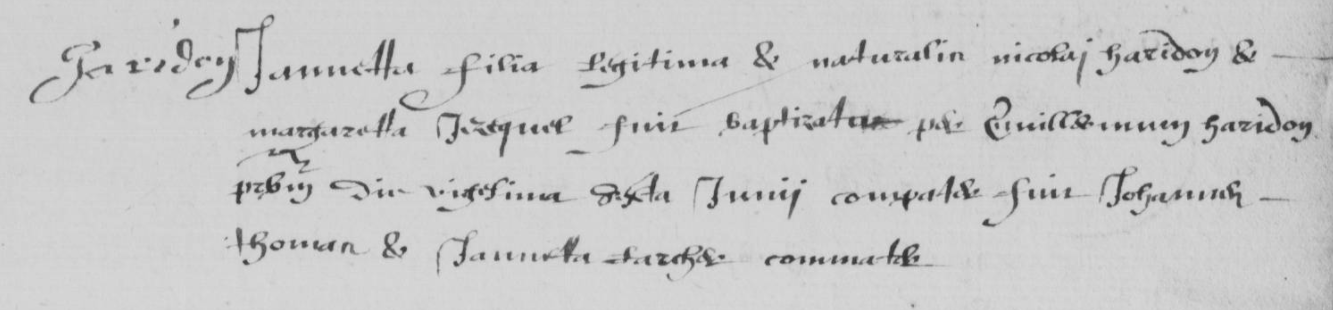 haridon Jannetta filia legitima & naturalis nicolaj haridon &
margaretta Jezequel fuit baptizata per Guillermum haridon
prbrm die vigesima sexta Junij compater fuit Johannes
thomas & Jannetta commater